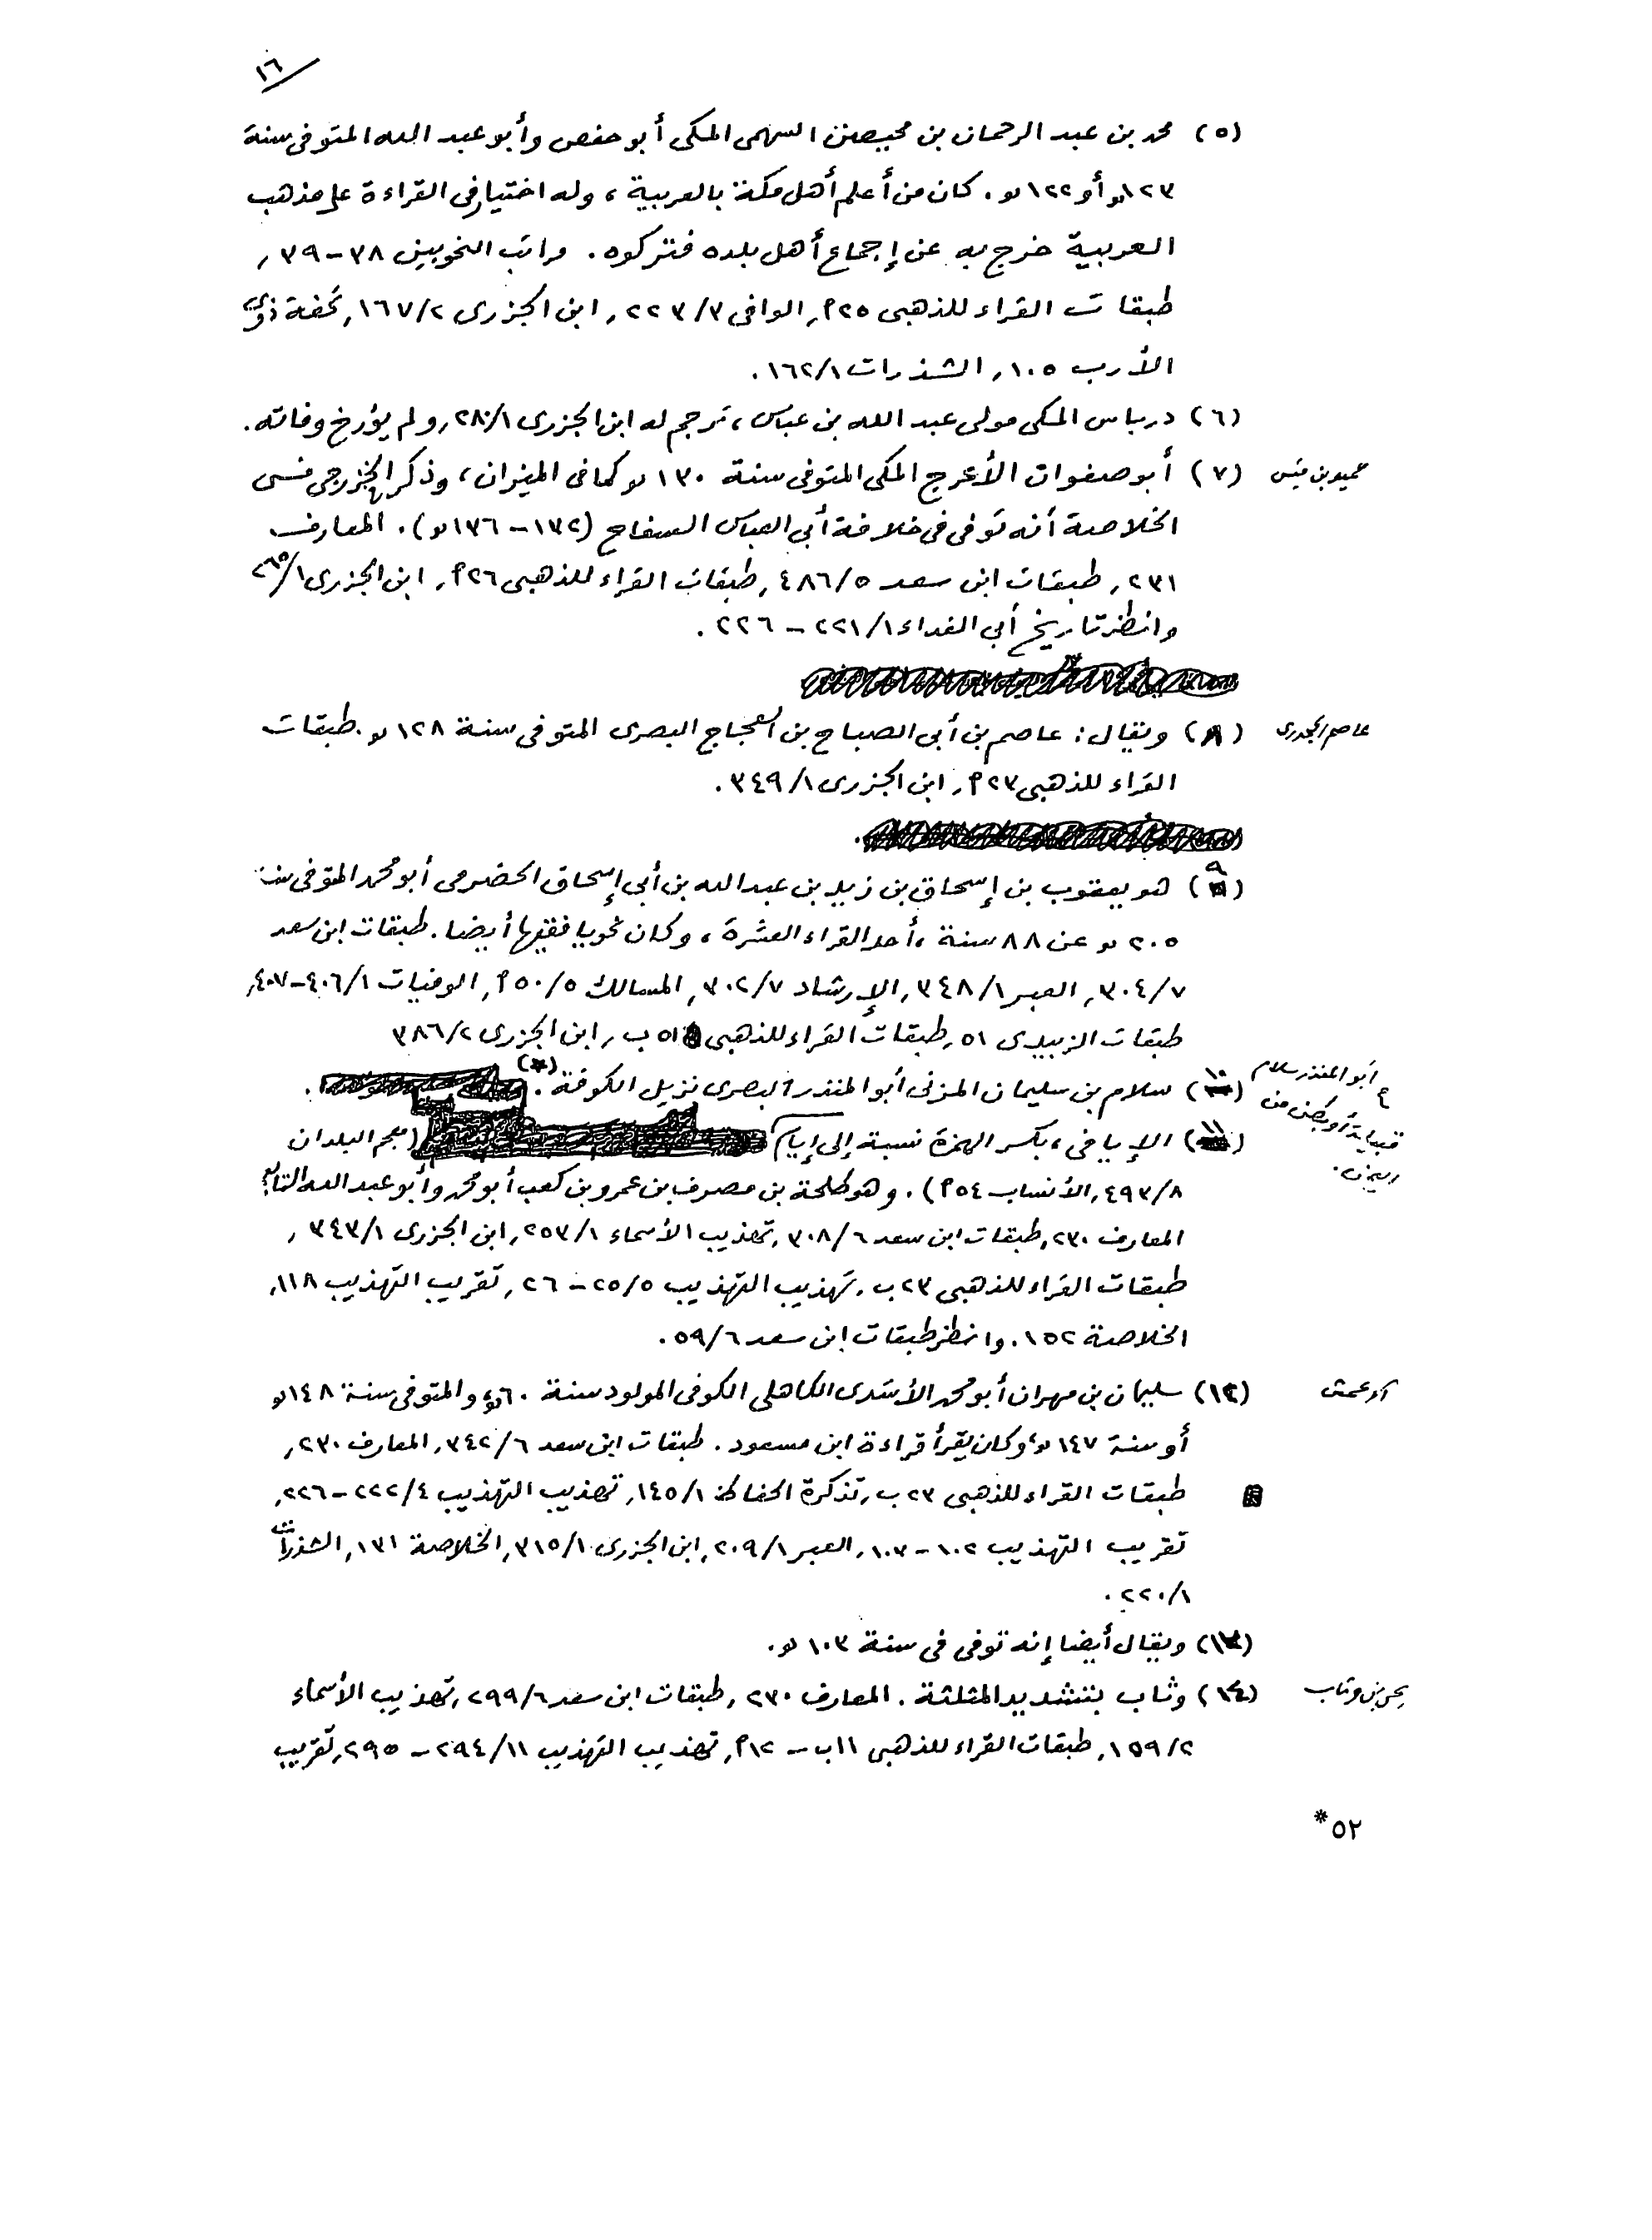 ١٦
(٥) محمد بن عبد الرحمان بن محيصن السهمى المكى أبو حفص وأبو عبد الله المتوفى سنة
١٢٣ هـ أو ١٢٢ هـ. كان من أعلم أهل مكة بالعربية، وله اختيار فى القراءة على مذهب
العربية خرج به عن إجماع أهل بلده فتركوه. مراتب النحويين ٣٨-٣٩,
طبقات القراء للذهبى ٢٥أ, الوافى ٢٢٣/٣, ابن الجزرى ١٦٧/٢, تحفة ذوى
الأرب ١٠٥, الشذرات ١٦٢/١.
(٦) درباس المكى مولى عبد الله بن عباس، ترجم له ابن الجزرى ٢٨٠/١, ولم يؤرخ وفاته.
حميد بن قيس (٧) أبو صفوان الأعرج المكى المتوفى سنة ١٣٠ هـ كما فى الميزان، وذكر الخزرجى فى
الخلاصة أنه توفى فى خلافة أبى العباس السفاح (١٣٢-١٣٦ هـ). المعارف
٢٣١, طبقات ابن سعد ٤٨٦/٥, طبقات القراء للذهبى ٢٦أ, ابن الجزرى ٢٦٥/١
وانظر تاريخ أبى الفداء ٢٢١/١-٢٢٦.
عاصم الجحدرى (٨) ويقال: عاصم بن أبى الصباح بن العجاج البصرى المتوفى سنة ١٢٨ هـ. طبقات
القراء للذهبى ٢٣أ, ابن الجزرى ٣٤٩/١.
(٩) هو يعقوب بن إسحاق بن زيد بن عبد الله بن أبى إسحاق الحضرمى أبو محمد المتوفى سنة
٢٠٥ هـ عن ٨٨ سنة، أحد القراء العشرة، وكان نحويا فقيها أيضا. طبقات ابن سعد
٣٠٤/٧, العبر ٣٤٨/١, الإرشاد ٣٠٢/٧, المسالك ٥٠/٥أ, الوفيات ٤٠٦/١-٤٠٧,
طبقات الزبيدى ٥١, طبقات القراء للذهبى ٥١ ب, ابن الجزرى ٣٨٦/٢
أبو المنذر سلام (١٠) سلام بن سليمان المزنى أبو المنذر البصرى نزيل الكوفة. (*)
(١١) الإيامى، بكسر الهمزة نسبة إلى إيام (معجم البلدان
٤٩٣/٨, الأنساب ٥٤أ). وهو طلحة بن مصرف بن عمرو بن كعب أبو محمد وأبو عبد الله التابعى
المعارف ٢٣٠, طبقات ابن سعد ٣٠٨/٦, تهذيب الأسماء ٢٥٣/١, ابن الجزرى ٣٤٣/١,
طبقات القراء للذهبى ٢٣ ب, تهذيب التهذيب ٢٥/٥-٢٦, تقريب التهذيب ١١٨,
الخلاصة ١٥٢. وانظر طبقات ابن سعد ٥٩/٦.
الأعمش (١٢) سليمان بن مهران أبو محمد الأسدى الكاهلى الكوفى المولود سنة ٦٠ هـ، والمتوفى سنة ١٤٨ هـ
أو سنة ١٤٧ هـ، وكان يقرأ قراءة ابن مسعود. طبقات ابن سعد ٣٤٢/٦, المعارف ٢٣٠,
طبقات القراء للذهبى ٢٣ ب, تذكرة الحفاظ ١٤٥/١, تهذيب التهذيب ٢٢٢/٤-٢٢٦,
تقريب التهذيب ١٠٢-١٠٣, العبر ٢٠٩/١, ابن الجزرى ٣١٥/١, الخلاصة ١٣١, الشذرات
٢٢٠/١.
(١٣) ويقال أيضا إنه توفى فى سنة ١٠٣ هـ.
يحيى بن وثاب (١٤) وثاب بتشديد المثلثة. المعارف ٢٣٠, طبقات ابن سعد ٢٩٩/٦, تهذيب الأسماء
١٥٩/٢, طبقات القراء للذهبى ١١ب-١٢أ, تهذيب التهذيب ٢٩٤/١١-٢٩٥, تقريب
٥٢*